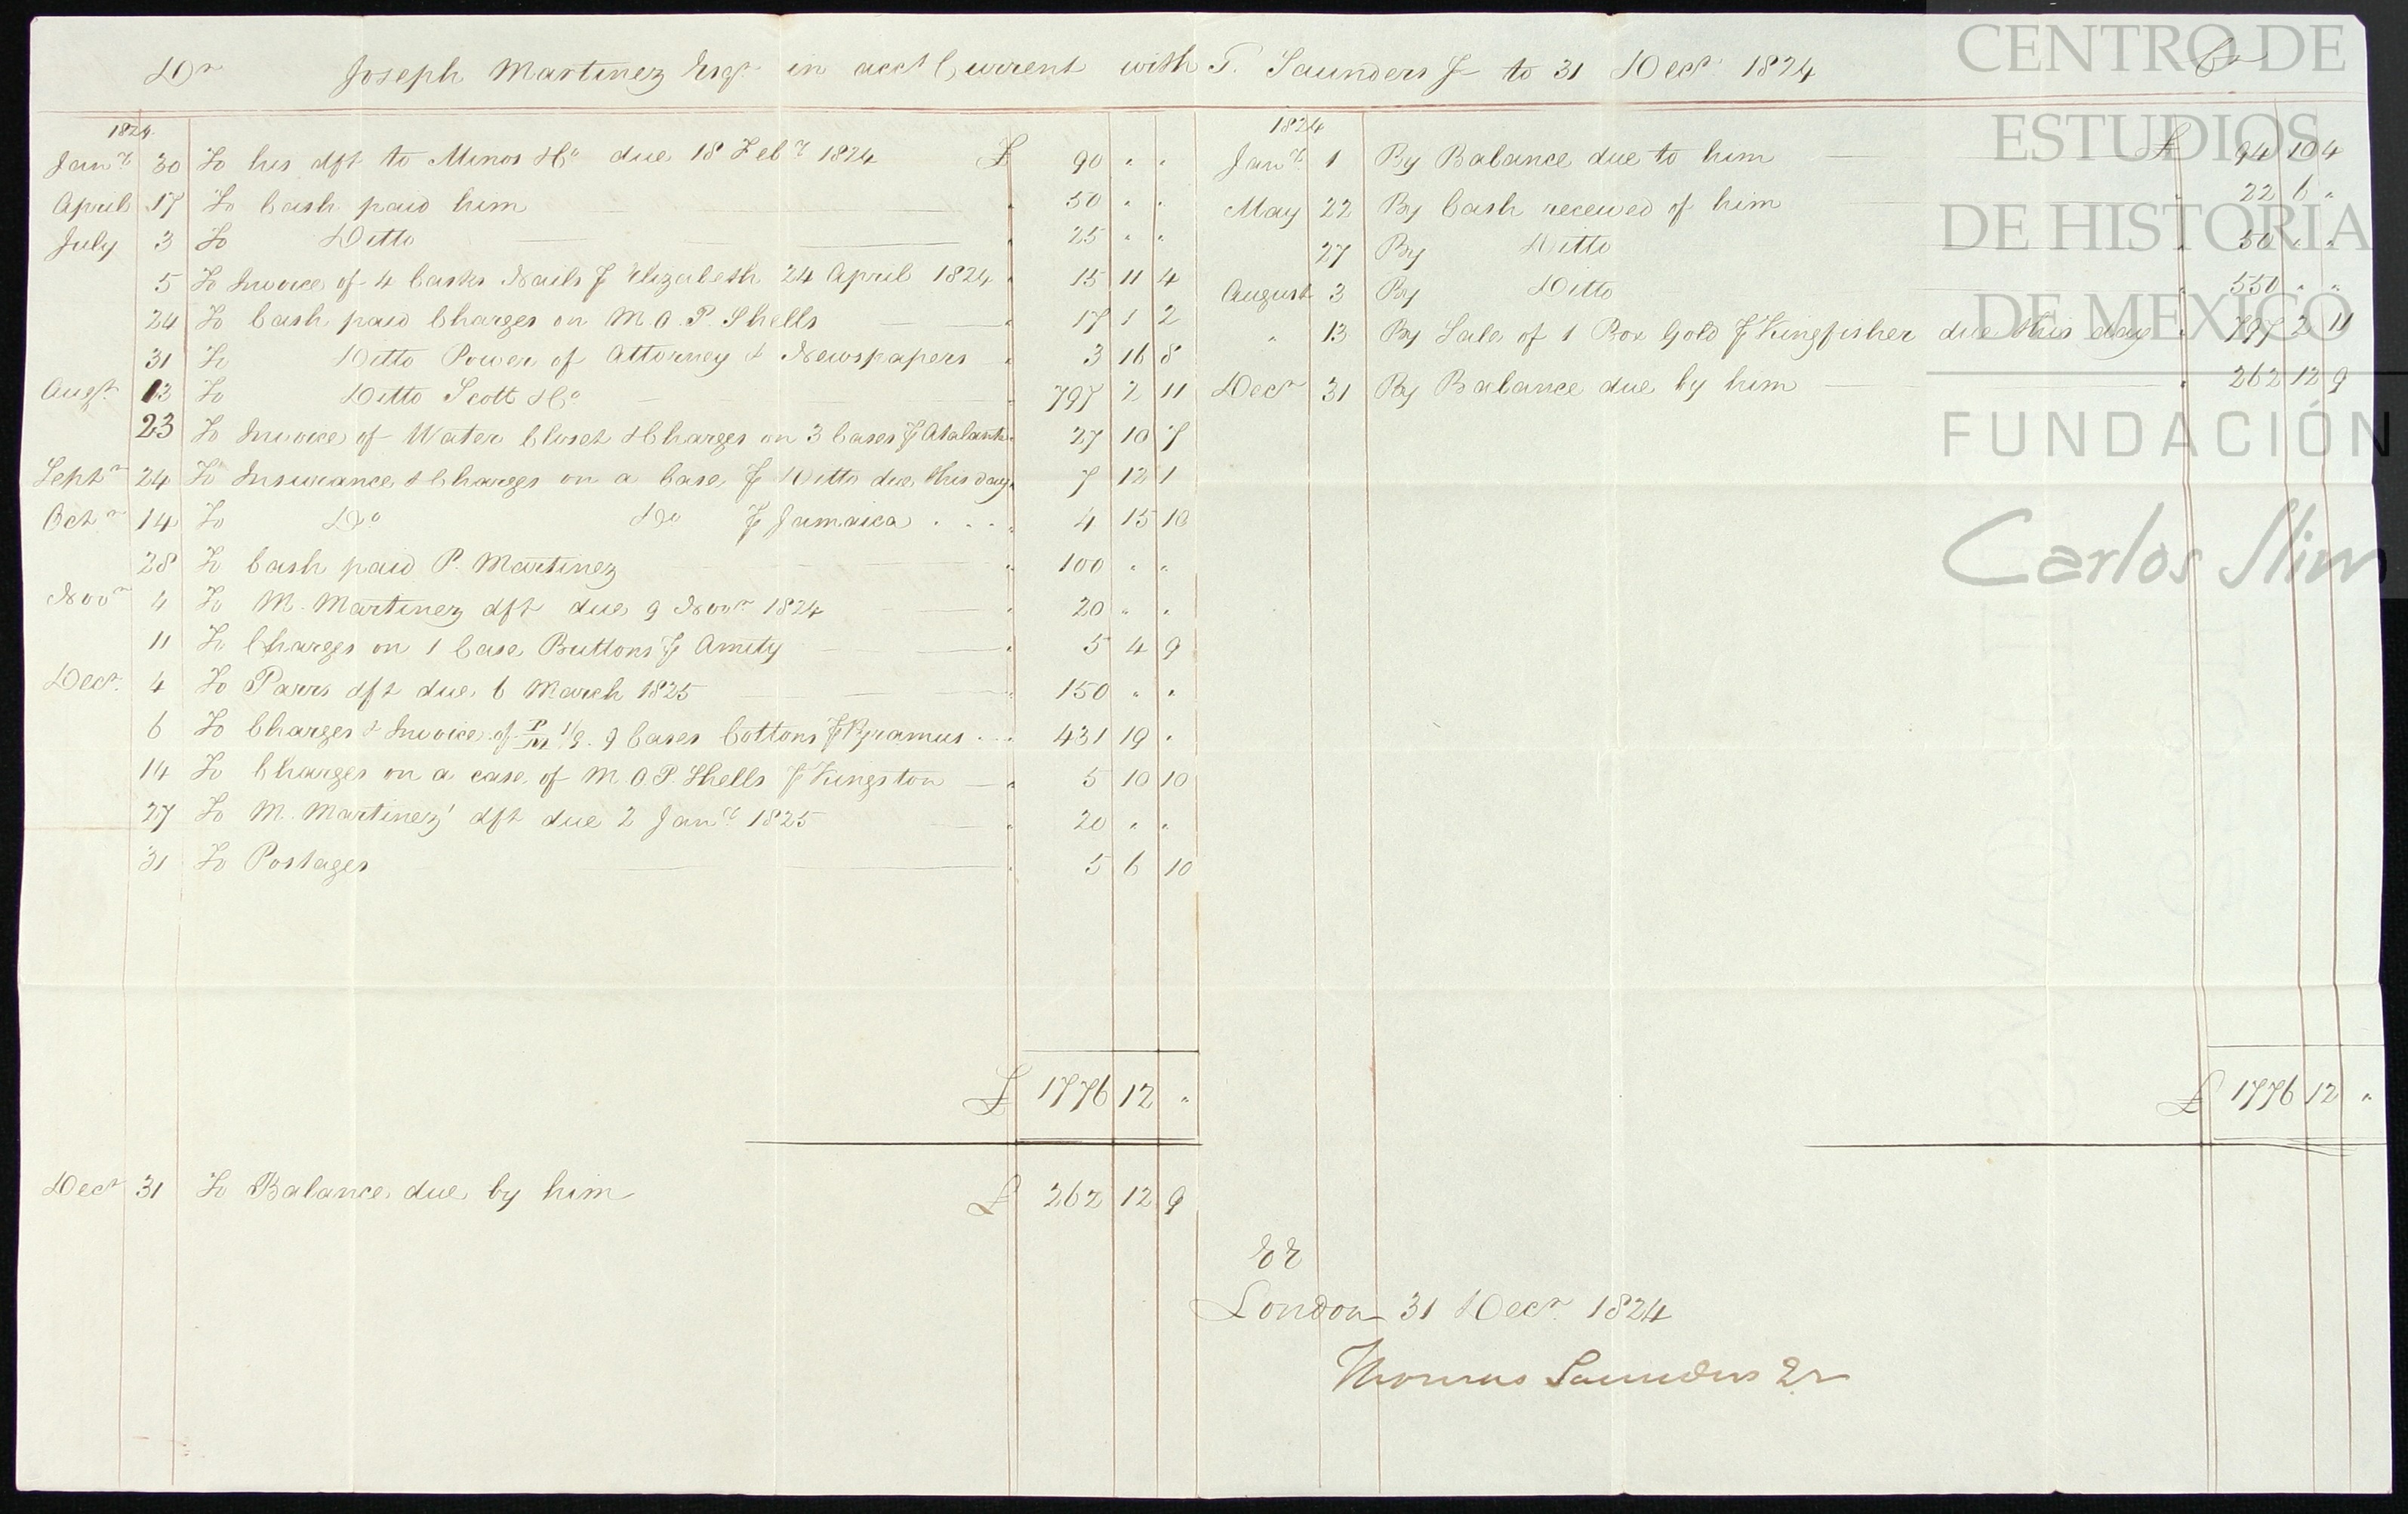 Dr Joseph Martinez Esqr in acct Current with T. Saunders Jr to 31 Decr 1824 Cr
1824
Jany 30 To his dft to Minos &Co due 18 Feby 1824 £ 90 " "
April 17 To Cash paid him " 50 " "
July 3 To Ditto " 25 " "
5 To Invoice of 4 Casks Nails p Elizabeth 24 April 1824 " 15 11 4
24 To Cash paid Charges on M.O.P. Shells " 17 1 2
31 To Ditto Power of Attorney & Newspapers " 3 16 8
Augt 13 To Ditto Scott &Co " 797 2 11
23 To Invoice of Water Closet & Charges on 3 Cases p Atalanta " 27 10 7
Septr 24 To Insurance & Charges on a Case p Ditto due this day " 7 12 1
Octr 14 To Do Do p Jamaica " 4 15 10
28 To Cash paid P. Martinez " 100 " "
Novr 4 To M. Martinez dft due 9 Novr 1824 " 20 " "
11 To Charges on 1 Case Buttons p Amity " 5 4 9
Decr 4 To Parrs dft due 6 March 1825 " 150 " "
6 To Charges & Invoice of P/M 1/9. 9 Cases Cottons p Pyramus " 431 19 "
14 To Charges on a case of M.O.P. Shells p Kingston " 5 10 10
27 To M. Martinez' dft due 2 Jany 1825 " 20 " "
31 To Postages " 5 6 10
£ 1776 12 "
Decr 31 To Balance due by him £ 262 12 9
1824
Jany 1 By Balance due to him £ 94 10 4
May 22 By Cash received of him " 22 6 "
27 By Ditto " 50 " "
August 3 By Ditto " 550 " "
" 13 By Sale of 1 Box Gold p Kingfisher due this day " 797 2 11
Decr 31 By Balance due by him " 262 12 9
£ 1776 12 "
EE
London 31 Decr 1824
Thomas Saunders Jr
CENTRO DE
ESTUDIOS
DE HISTORIA
DE MEXICO
FUNDACIÓN
Carlos Slim